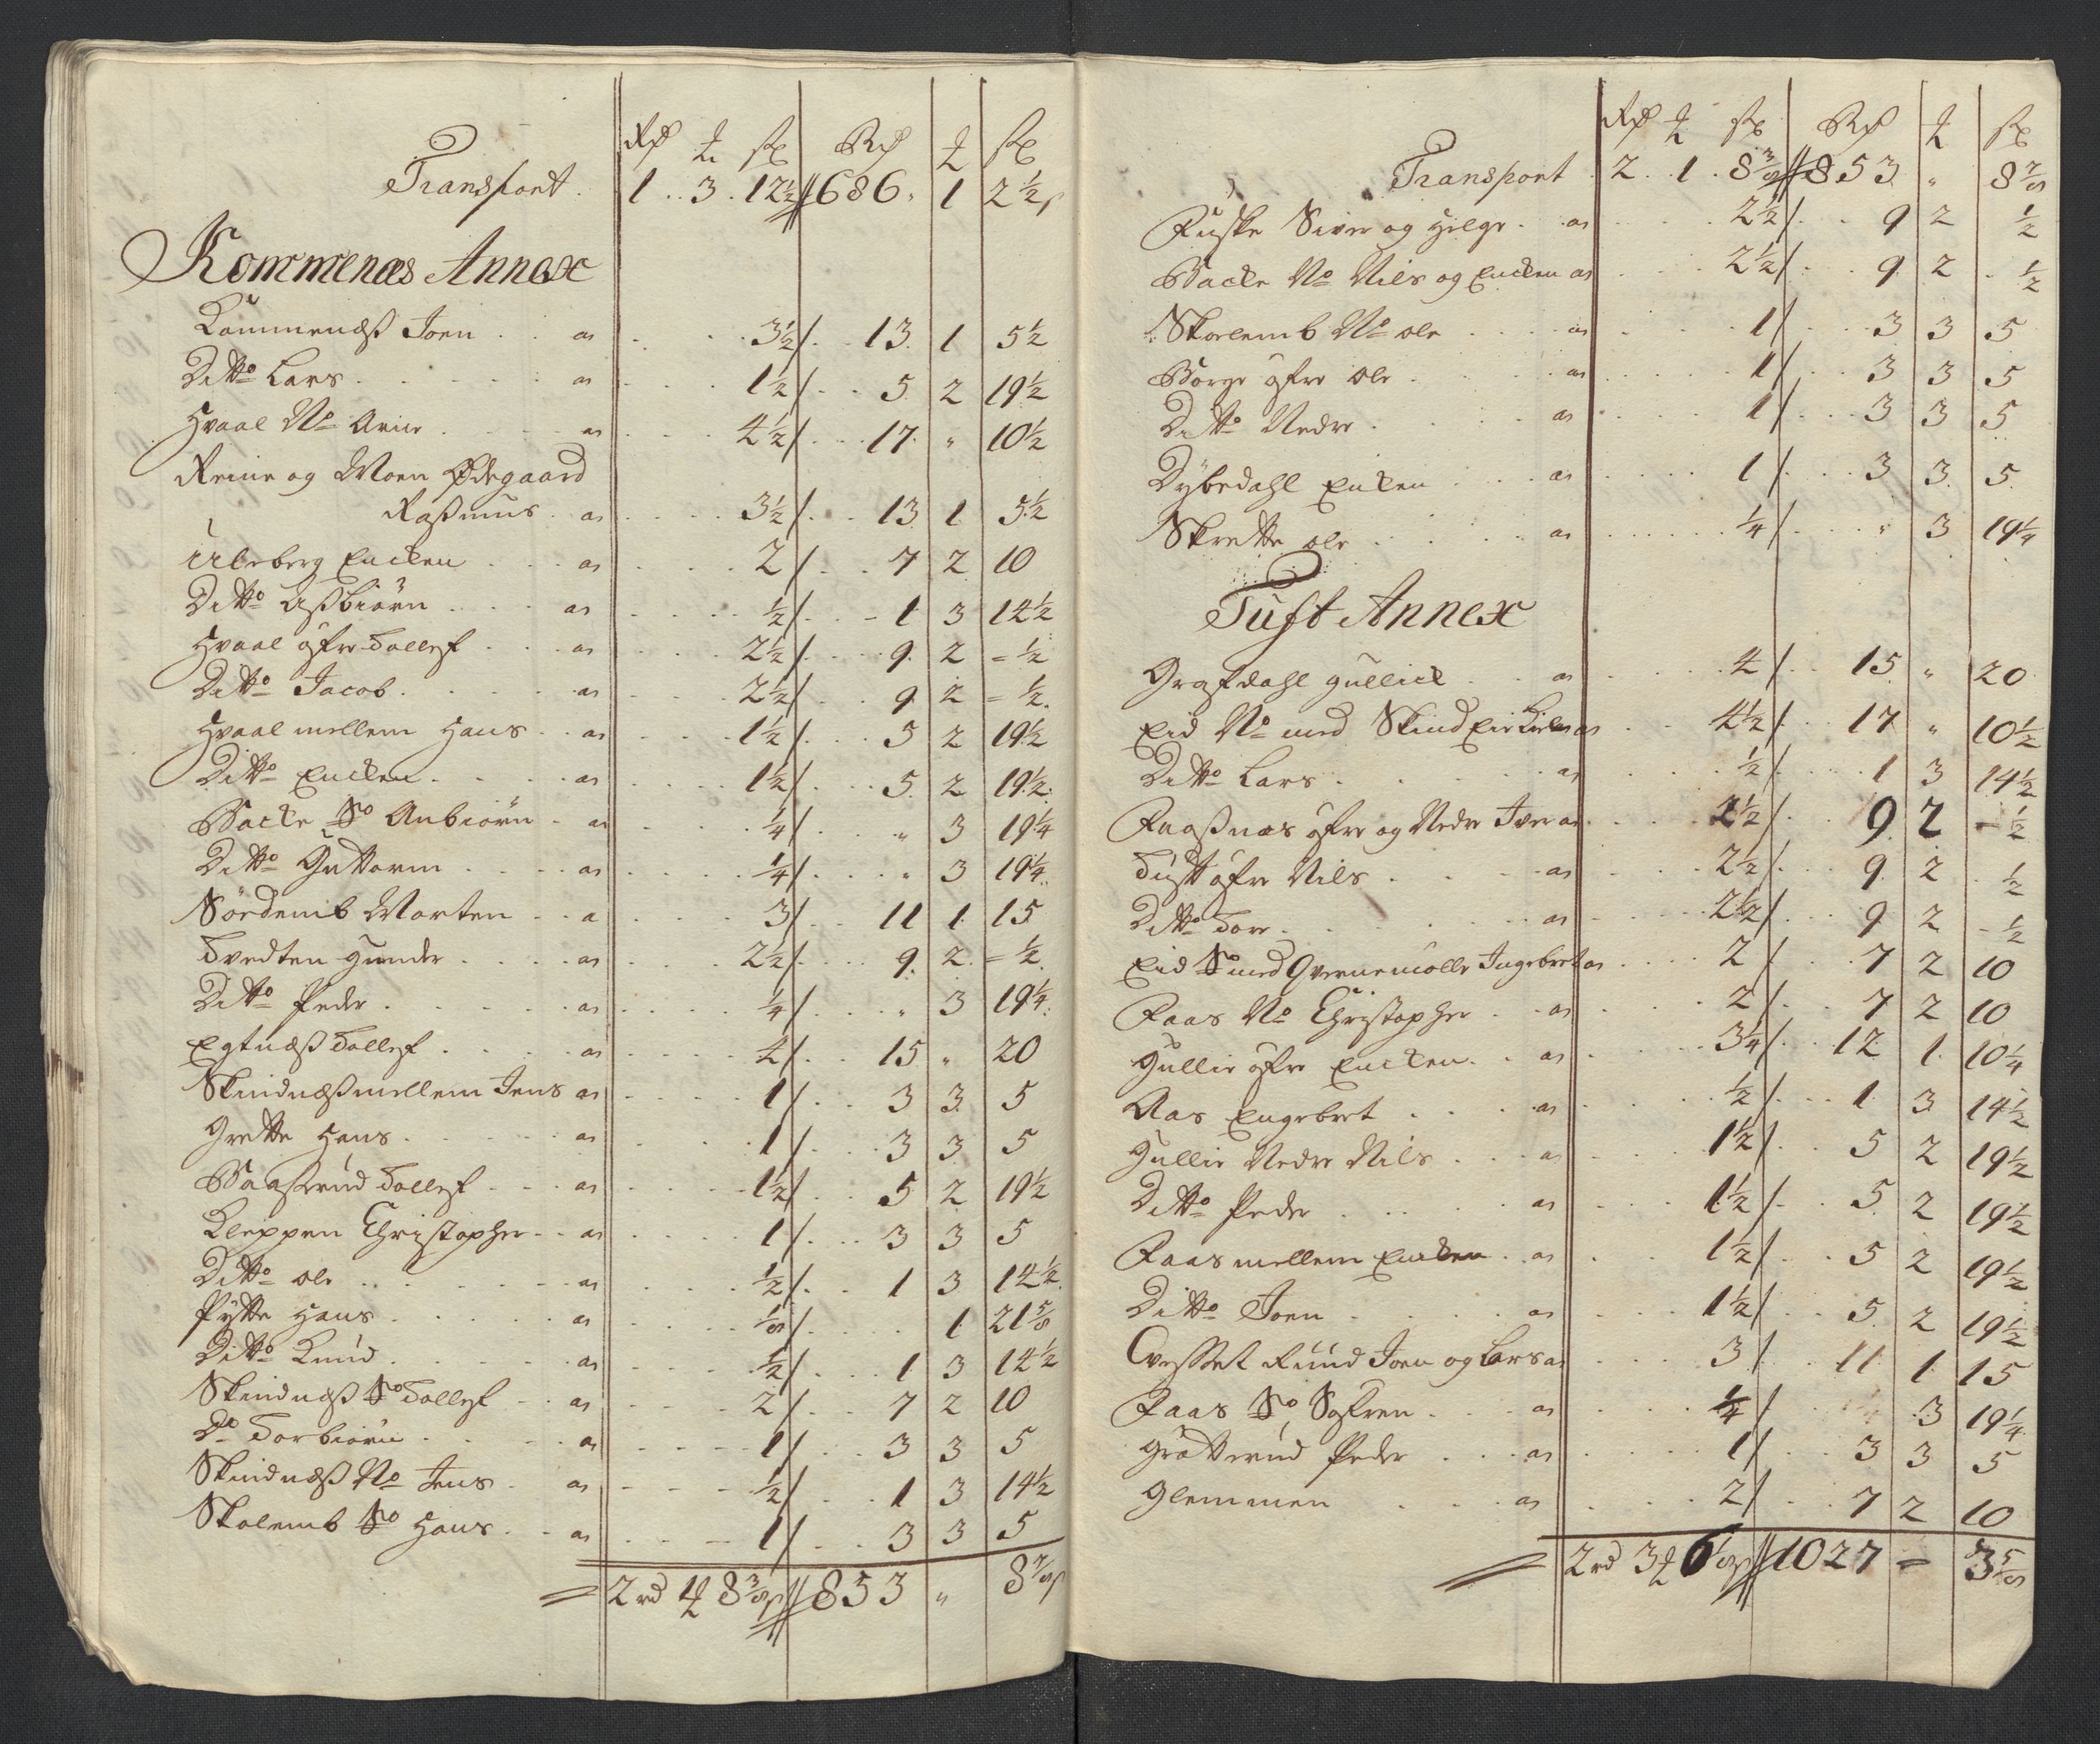 Rd ƶ sk Rd ƶ sk
Transport . 1 . . 3 . 12½ 686 . 1 2½
Kommenes Annex
Kommenæß Joen . . as . . 3½ / . 13 1 5½
Ditto Lars . . . as . . 1½ / . 5 2 19½
Hvaal No Anne . . as . . 4½ / . 17 " 10½
Reine og Moen Ødegaard
Raßmus . as . . 3½ / . 13 1 5½
Uleberg Encken . . as . . 2 / . 7 2 10
Ditto Aßbiørn . . as . . ½ / . 1 3 14½
Hvaal øfre Tollef . . as . . 2½ / . 9 2 = ½
Ditto Jacob . . as . . 2½ / . 9 2 = ½
Hvaal mellem Hans . . as . . 1½ / . 5 2 19½
Ditto Encken . . as . . 1½ / . 5 2 19½
Backe So Anbiørn . as . . ¼ / . " 3 19¼
Ditto Guttorm . . as . . ¼ / . " 3 19¼
Sørdemb Morten . . a . . 3 / . 11 1 15
Tvedten Gunder . . as . . 2½ / . 9 2 = ½
Ditto Peder . . as . . ¼ / . " 3 19¼
Egtnæß Tollef . . as . . 4 / . 15 " 20
Skindnæß mellem Jens as . . 1 / . 3 3 5
Grette Hans . . as . . 1 / . 3 3 5
Baaserud Tollef . . as . . 1½ / . 5 2 19½
Kleppen Christopher . . as . . 1 / . 3 3 5
Ditto Ole . . as . . ½ / . 1 3 14½
Pytte Hans . . as . . ⅛ / . 1 21⅝
Ditto Knud . . as . . ½ / . 1 3 14½
Skindnæß So Tollef . . as . . 2 / . 7 2 10
Do Torbiørn . . as . . 1 / . 3 3 5
Skindnæß No Jens . as . . ½ / . 1 3 14½
Skalemb So Hans . . as . . 1 / . 3 3 5
= 2 rd 1ƶ 8⅜ 853 " 8⅞
Rd ƶ sk Rd ƶ sk
Transport . 2 . 1 . 8⅜ 853 " 8⅞
Ruske Siver og Helge . as . . 2½ / . 9 2 ½
Backe No Nils og Encken as . . 2½ / . 9 2 . ½
Skorlemb No Ole . . as . . 1 / . 3 3 5
Borge øfre Ole . . as . . 1 / . 3 3 5
Ditto Nedre . . as . . 1 / . 3 3 5
Dybedahl Encken . . as . . 1 / . 3 3 5
Skrette Ole . . as . . ¼ / . " 3 19¼
Tuft Annex
Grafdahl Gullick . . as . . 4 / . 15 " 20
Eid No med Skind as . . 4½ / . 17 " 10½
Ditto Lars . . as . . ½ / . 1 3 14½
Raaßnæs øfre og Nedre Iver as . . 2½ / . 9 2 - ½
Tuft øfre Nils . . as . . 2½ / . 9 2 . ½
Ditto Tore . . as . . 2½ / . 9 2 - ½
Eid So med Qvernemølle Ingebret as . . 2 / . 7 2 10
Raas No Christopher . . as . . 2 / . 7 2 10
Gullie øfre Encken . . as . . 3¼ / . 12 1 10¼
Aas Engebret . . as . . ½ / . 1 3 14½
Gullie Nedre Nils . . as . . 1½ / . 5 2 19½
Ditto Peder . . as . . 1½ / . 5 2 19½
Raas mellem Encken . . as . . 1½ / . 5 2 19½
Ditto Joen . . as . . 1½ / . 5 2 19½
Ruud Joen og Lars as . . 3 / . 11 1 15
Raas So Søfren . . as . . ¼ / . 3 19¼
Grøtterud Peder . . as . . 1 / . 3 3 5
Glemmen . . as . . 2 / . 7 2 10
= 2 rd 3ƶ 6⅛ 1027 = 3⅝